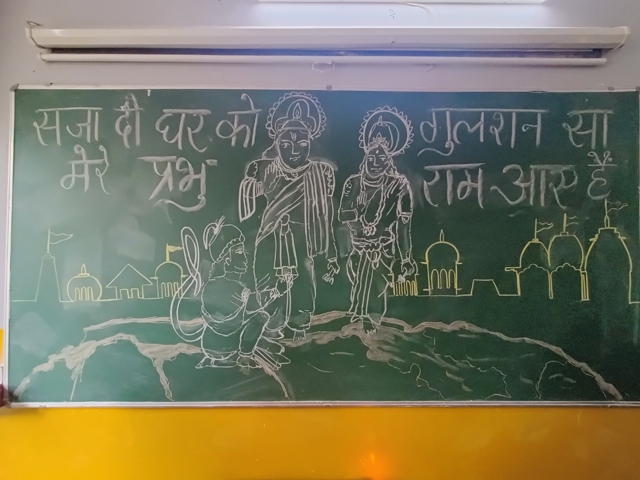 सजा दौ घर को गुलशन सा
मेरे प्रभु राम आए है